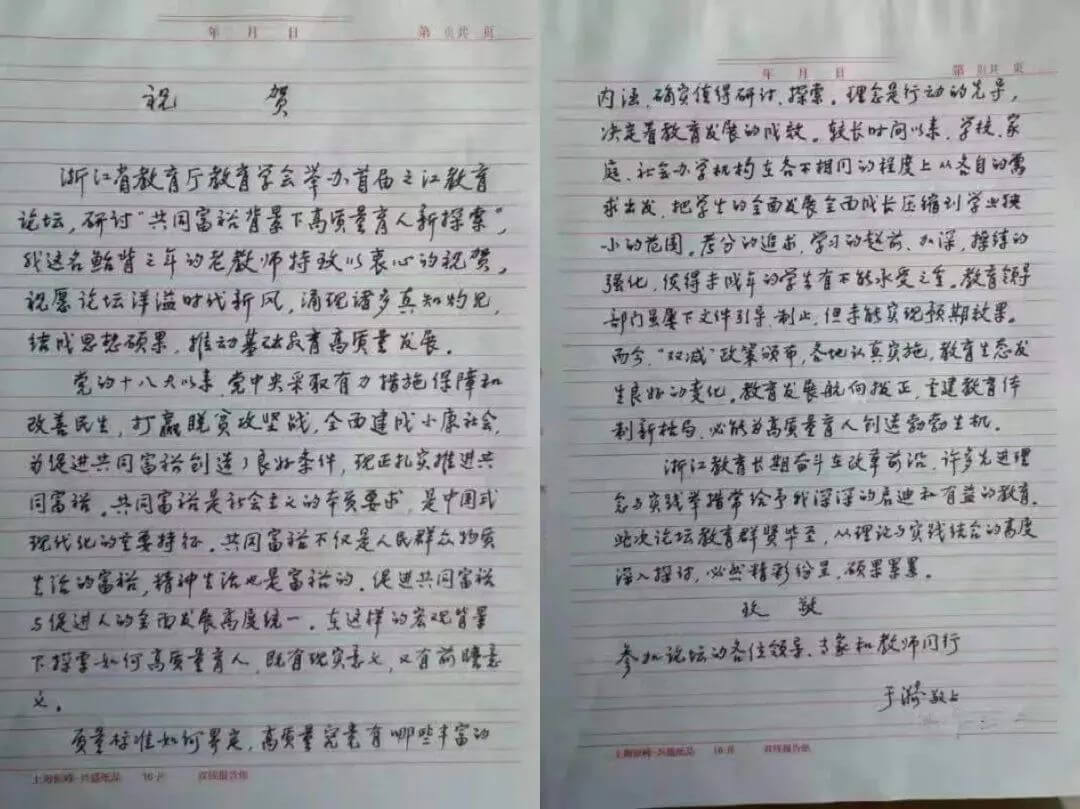 年 月 日
第 页共 页
祝 贺
浙江省教育厅教育学会举办首届之江教育
论坛，研讨“共同富裕背景下高质量育人新探索”，
我这名鲐背之年的老教师特致以衷心的祝贺。
祝愿论坛洋溢时代新风，涌现诸多真知灼见，
结成思想硕果，推动基础教育高质量发展。
党的十八大以来，党中央采取有力措施保障和
改善民生，打赢脱贫攻坚战，全面建成小康社会，
为促进共同富裕创造了良好条件，现正扎实推进共
同富裕。共同富裕是社会主义的本质要求，是中国式
现代化的重要特征。共同富裕不仅是人民群众物质
生活的富裕，精神生活也是富裕的。促进共同富裕
与促进人的全面发展高度统一。在这样的宏观背景
下探索如何高质量育人，既有现实意义，又有前瞻意
义。
质量标准如何界定，高质量究竟有哪些丰富的
16开 双线报告纸
年 月 日
第 页共 页
内涵，确实值得研讨、探索。理念是行动的先导，
决定着教育发展的成效。较长时间以来，学校、家
庭、社会办学机构在各不相同的程度上从各自的需
求出发，把学生的全面发展全面成长压缩到学业狭
小的范围。考分的追求，学习的超前、加深，操练的
强化，使得未成年的学生有不能承受之重。教育领导
部门虽屡下文件引导、制止，但未能实现预期效果。
而今，“双减”政策颁布，各地认真实施，教育生态发
生良好的变化。教育发展航向拨正，重建教育体
制新格局，必能为高质量育人创造勃勃生机。
浙江教育长期奋斗在改革前沿，许多先进理
念与实践举措常给予我深深的启迪和有益的教育。
此次论坛教育群贤毕至，从理论与实践结合的高度
深入探讨，必然精彩纷呈，硕果累累。
致 敬
参加论坛的各位领导、专家和教师同行
于漪敬上
16开 双线报告纸